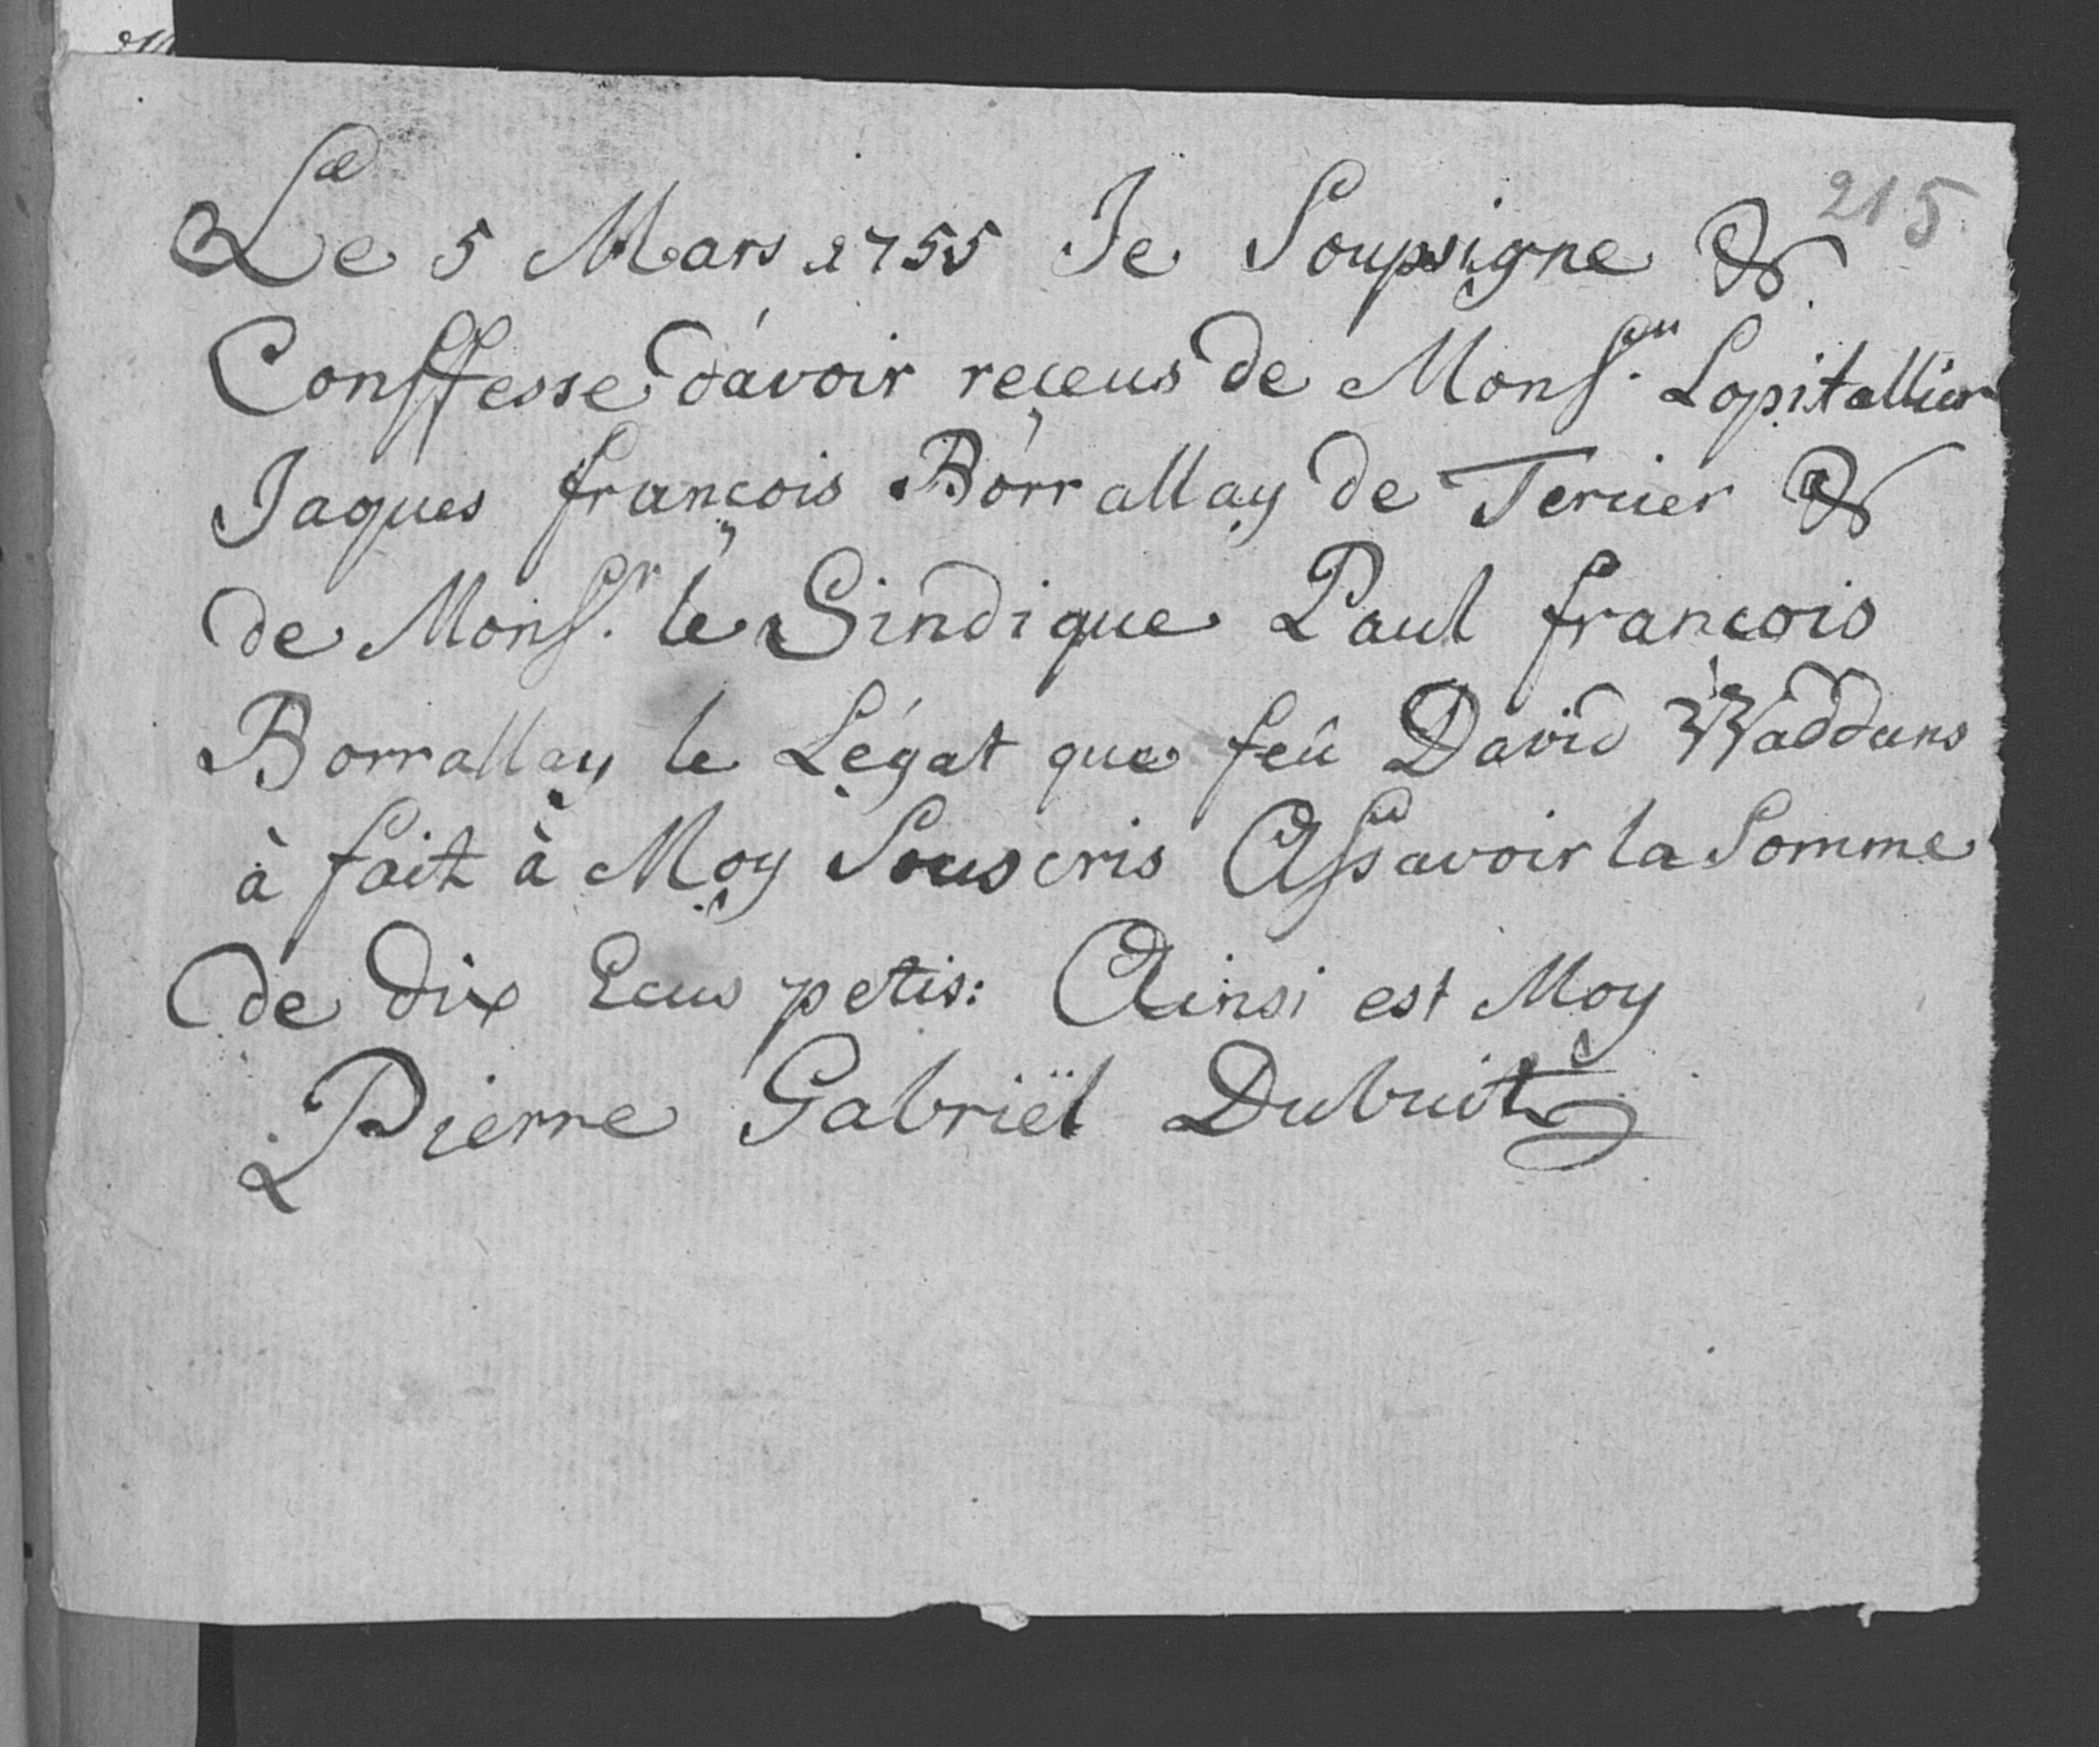 215
Le 5 Mars 1755 Je Soupsigne &
Conffesse d'avoir reçeus de Monsr. Lopitallier
Jaques françois Borrallay de Tercier &
de Monsr. le Sindique Paul francois
Borrallay le Légat que feû David Waddans
à fait à Moy Souscris Assavoir la Somme
de dix Ecus petis: Ainsi est Moy
Pierre Gabriël Dubuit